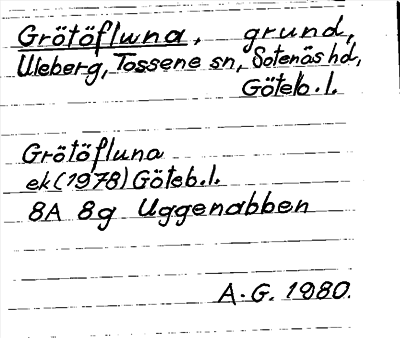 Grötöfluna, grund,
Uleberg, Tossene sn, Sotenäs hd,
Göteb. l.
Grötöfluna
ek (1978) Göteb. l.
8A 8g Uggenabben
A. G. 1980.